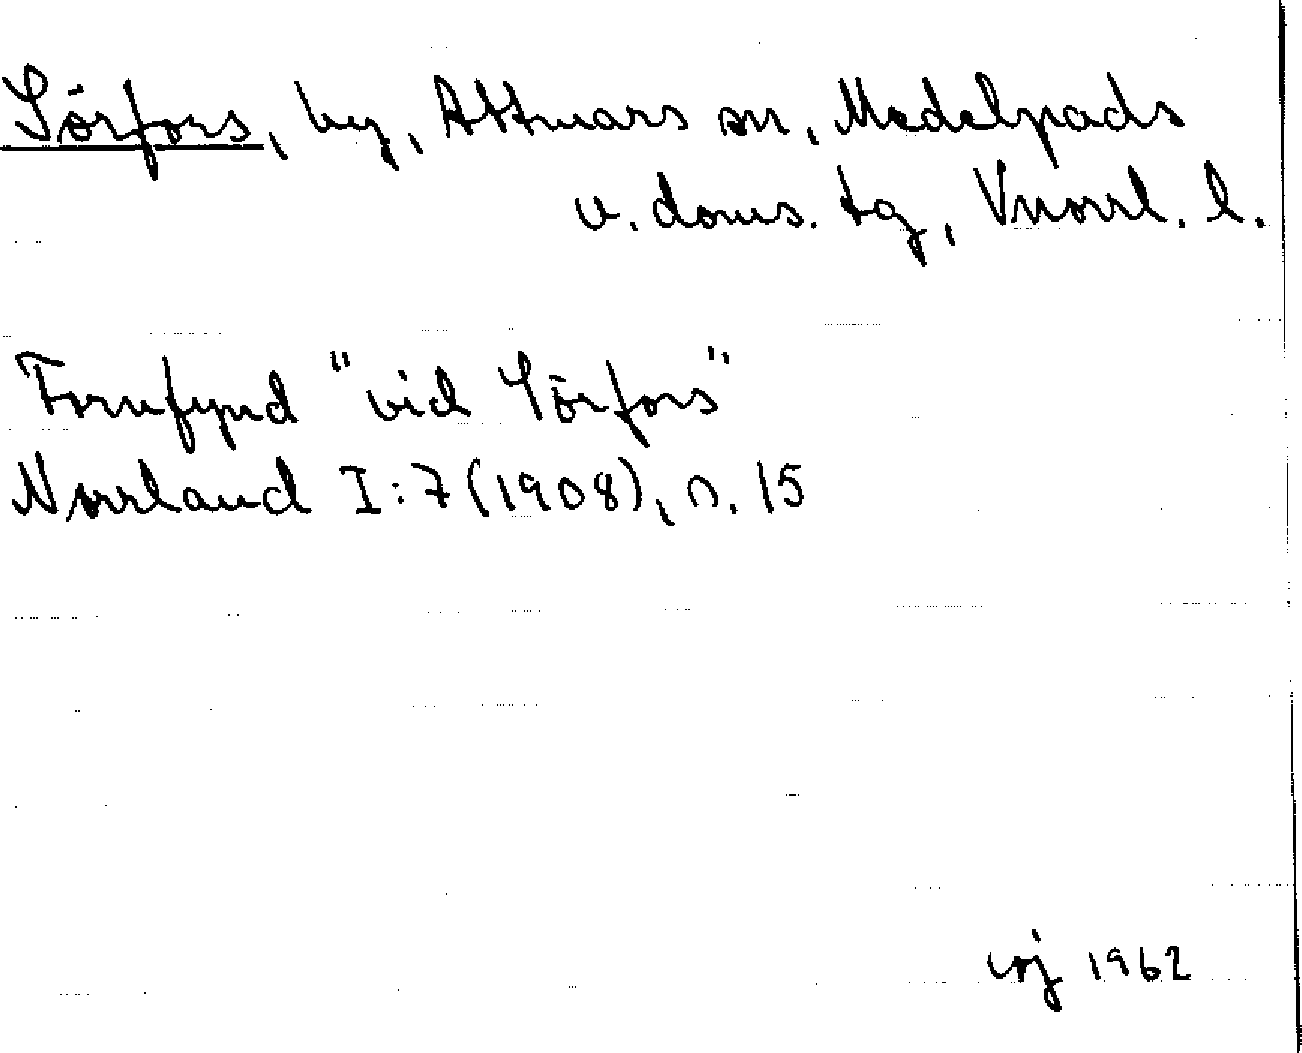 Sörfors, by, Attmars sn, Medelpads
v. doms. tg, Vnorrl. l.
Fornfynd "vid Sörfors"
Norrland I:7 (1908), s. 15
1962